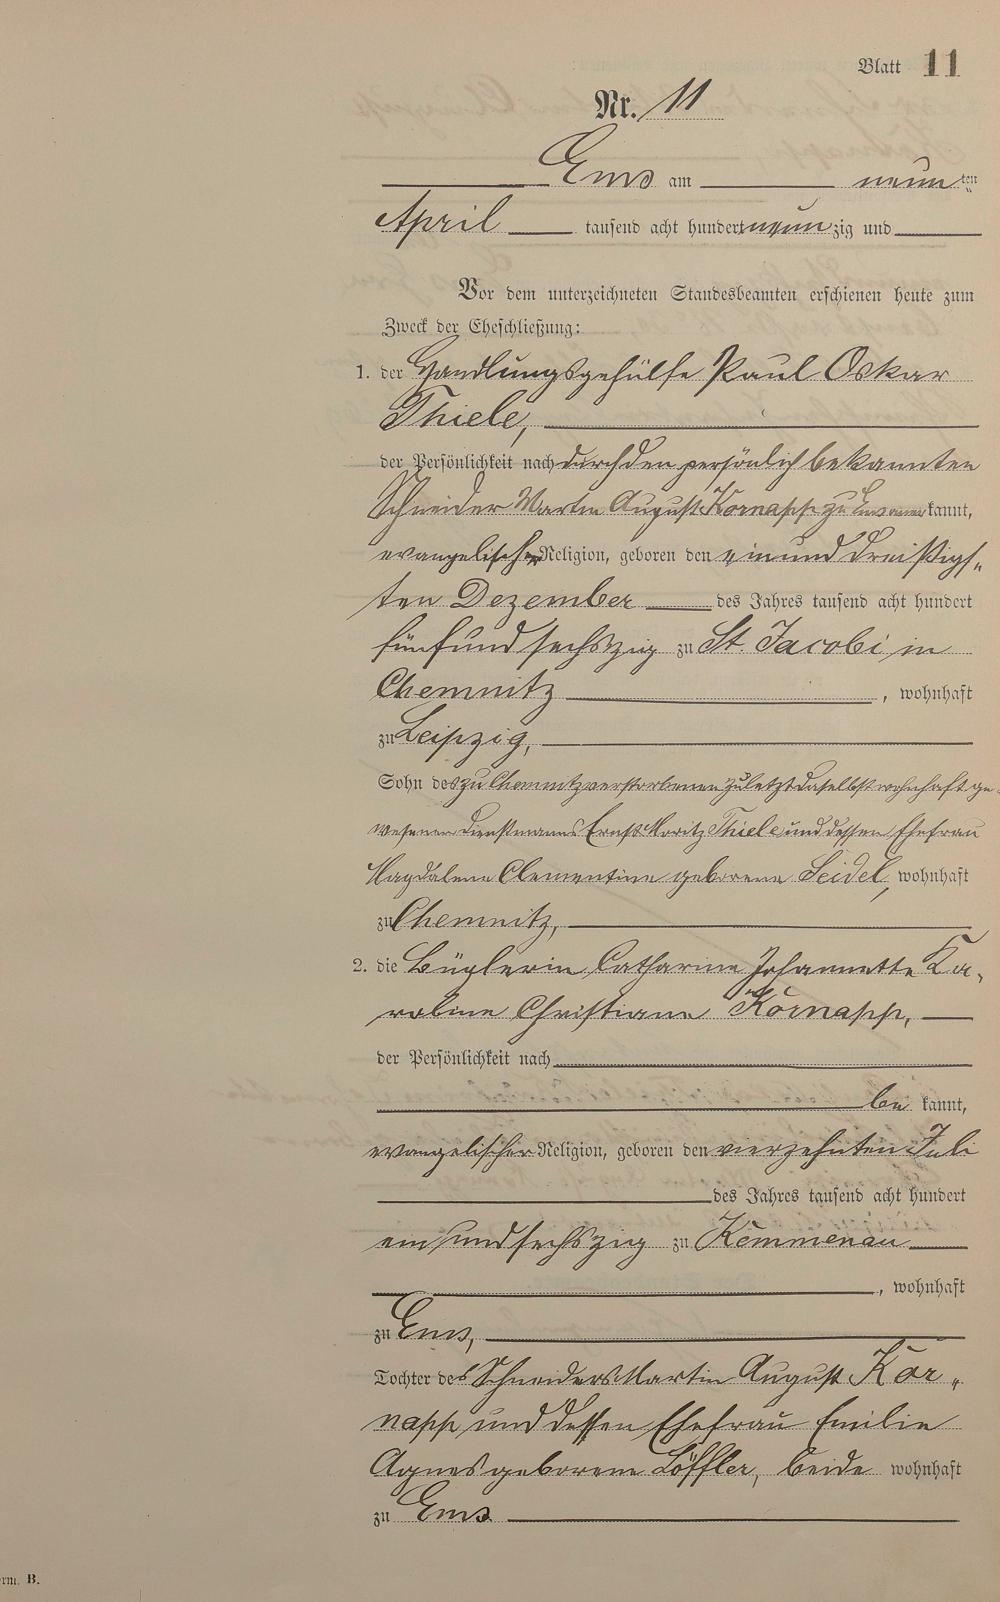 Blatt 11
Nr. 11
Ems am neunten
April tausend acht hundert neunzig und
Vor dem unterzeichneten Standesbeamten erschienen heute zum
Zweck der Eheschließung:
1. der Handlungsgehülfe Paul Oskar
Thiele,
der Persönlichkeit nach durch den persönlich bekannten
Schneider Martin August Körnapp zu Ems anerkannt,
evangelischer Religion, geboren den einund dreißigs„
ten Dezember des Jahres tausend acht hundert
fünfundsechszig zu St. Jacobi in
Chemnitz, wohnhaft
zu Leipzig,
Sohn des zu Chemnitz verstorbenen zuletzt daselbst wohnhaft ge-
wesenen Dienstmanns Ernst Moritz Thiele und dessen Ehefrau
Magdalena Clementine geborene Seidel, wohnhaft
zu Chemnitz,
2. die Büglerin Catharine Johannette Ka„
roline Christiane Körnapp,
der Persönlichkeit nach
bekannt,
evangelischer Religion, geboren den vierzehnten Juli
des Jahres tausend acht hundert
einundsechszig zu Kemmenau
, wohnhaft
zu Ems,
Tochter des Schneiders Martin August Kör„
napp und dessen Ehefrau Emilie
Agnes geborene Löffler, beide wohnhaft
zu Ems
rm. B.